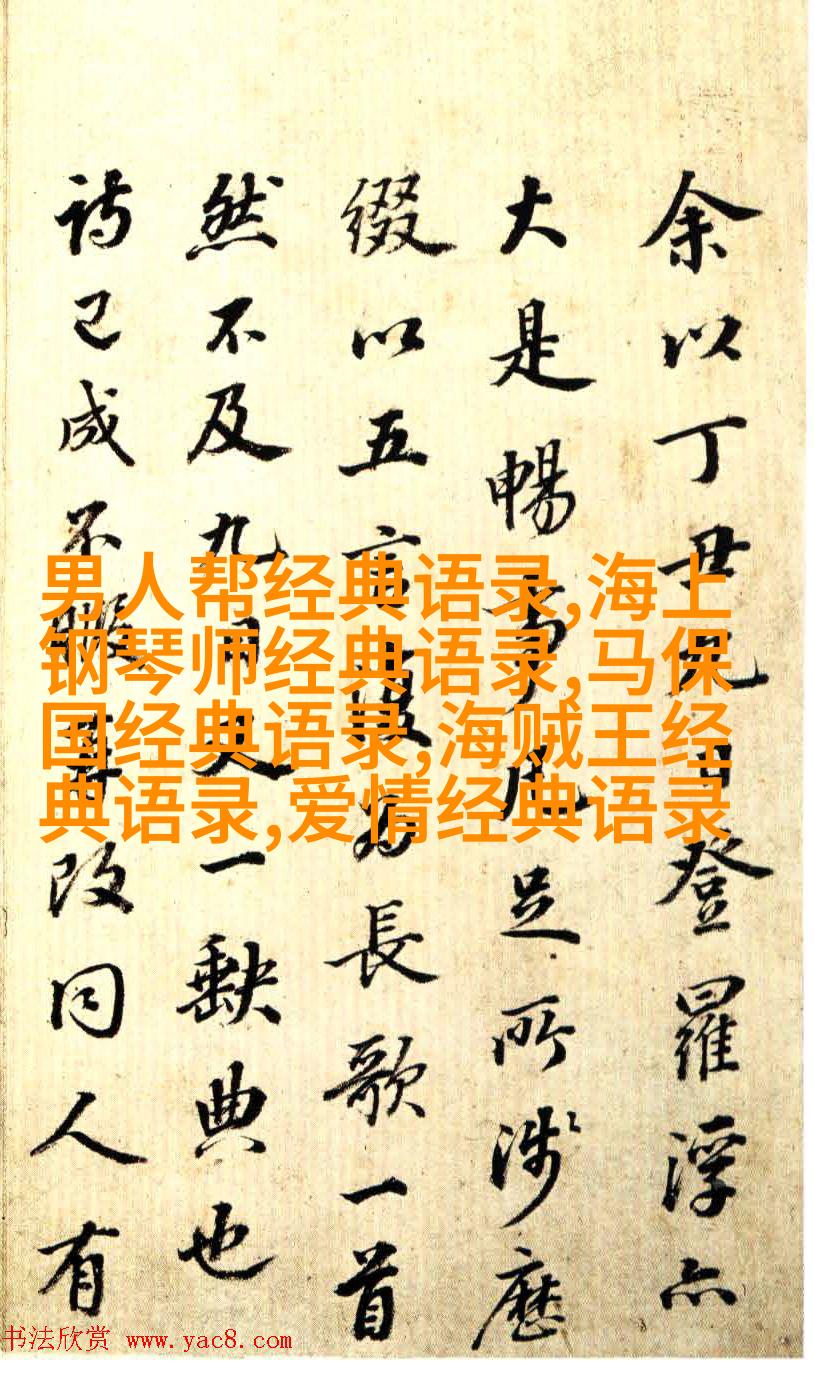 余以丁丑元日登羅浮亦
大是暢事凡足所涉歷
綴以五言復為長歌一首
然不及九日又一缺典也
詩已成不暇改同人有
男人帮经典语录,海上
钢琴师经典语录,马保
国经典语录,海贼王经
典语录,爱情经典语录
书法欣赏 www.yac8.com